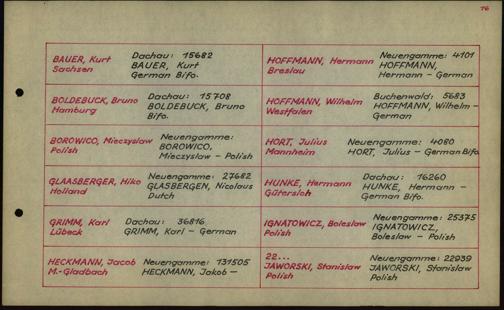 76
BAUER, Kurt
Sachsen
Dachau: 15682
BAUER, Kurt
German Bifo.
HOFFMANN, Hermann
Breslau
Neuengamme: 4101
HOFFMANN,
Hermann - German
BOLDEBUCK, Bruno
Hamburg
Dachau: 15708
BOLDEBUCK, Bruno
Bifo.
HOFFMANN, Wilhelm
Westfalen
Buchenwald: 5683
HOFFMANN, Wilhelm -
German
BOROWICO, Mieczyslaw
Polish
Neuengamme:
BOROWICO,
Mieczyslaw - Polish
HORT, Julius
Mannheim
Neuengamme: 4080
HORT, Julius - German Bifo.
GLAASBERGER, Hiko
Holland
Neuengamme: 27682
GLASBERGEN, Nicolaus
Dutch
HUNKE, Hermann
Gütersloh
Dachau: 16260
HUNKE, Hermann -
German Bifo.
GRIMM, Karl
Lübeck
Dachau: 36816
GRIMM, Karl - German
IGNATOWICZ, Boleslaw
Polish
Neuengamme: 25375
IGNATOWICZ,
Boleslaw - Polish
HECKMANN, Jacob
M.-Gladbach
Neuengamme: 131505
HECKMANN, Jakob -
22...
JAWORSKI, Stanislaw
Polish
Neuengamme: 22939
JAWORSKI, Stanislaw
Polish